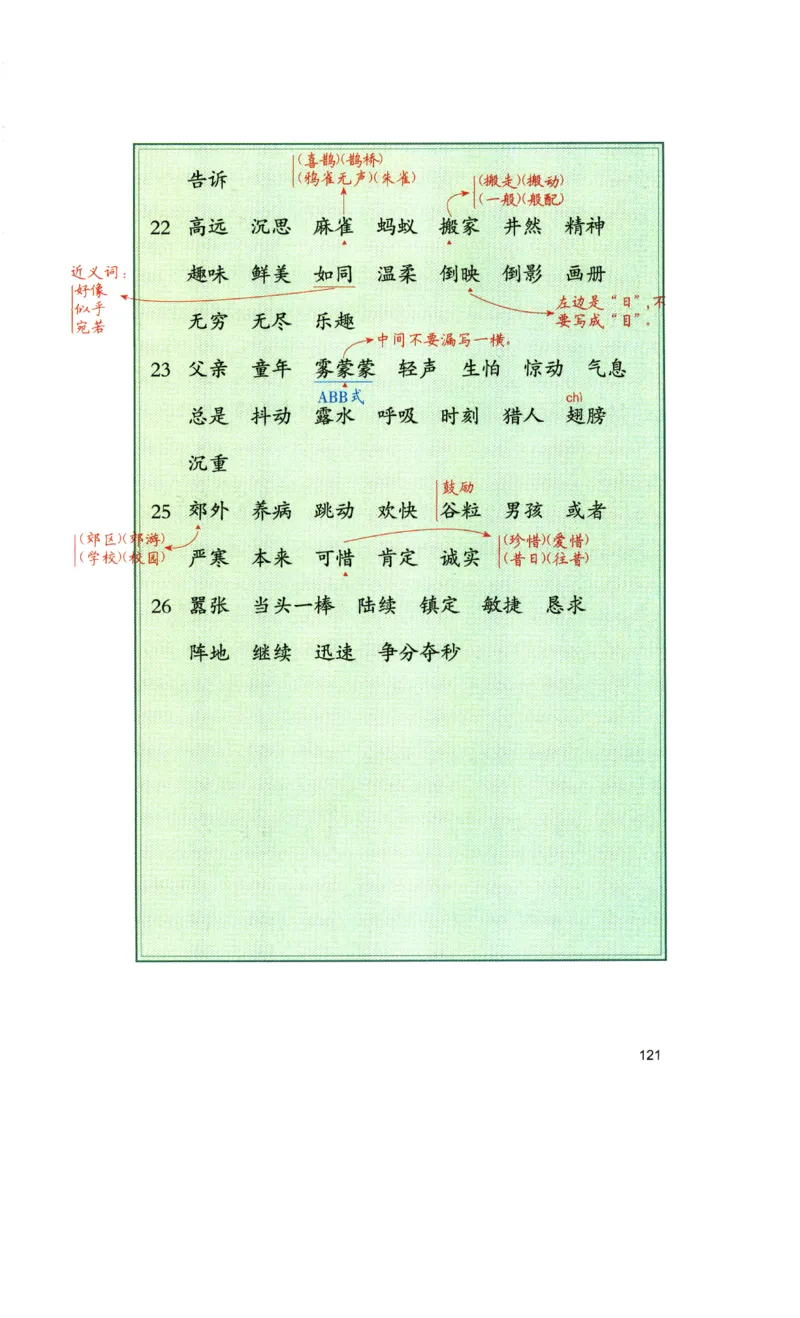 (喜鹊)(鹊桥)
告诉 (鸦雀无声)(朱雀) (搬走)(搬动)
(一般)(般配)
22 高远 沉思 麻雀 蚂蚁 搬家 井然 精神
近义词: 趣味 鲜美 如同 温柔 倒映 倒影 画册
好像
似乎 左边是“日”,不
宛若 无穷 无尽 乐趣 要写成“目”。
中间不要漏写一横。
23 父亲 童年 雾蒙蒙 轻声 生怕 惊动 气息
ABB式 chì
总是 抖动 露水 呼吸 时刻 猎人 翅膀
沉重
鼓励
25 郊外 养病 跳动 欢快 谷粒 男孩 或者
(郊区)(郊游) (珍惜)(爱惜)
(学校)(校园) 严寒 本来 可惜 肯定 诚实 (昔日)(往昔)
26 嚣张 当头一棒 陆续 镇定 敏捷 恳求
阵地 继续 迅速 争分夺秒
121